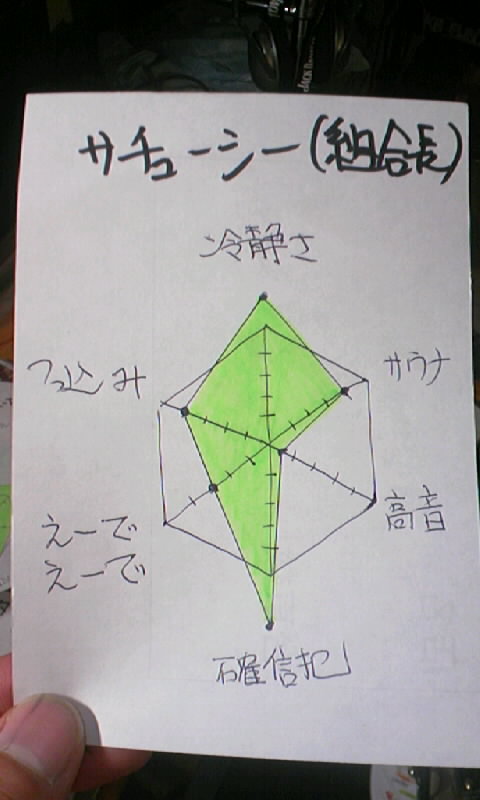 サチューシー(組合長)
冷静さ
ツッ込み
サウナ
えーで
えーで
高音
確信犯